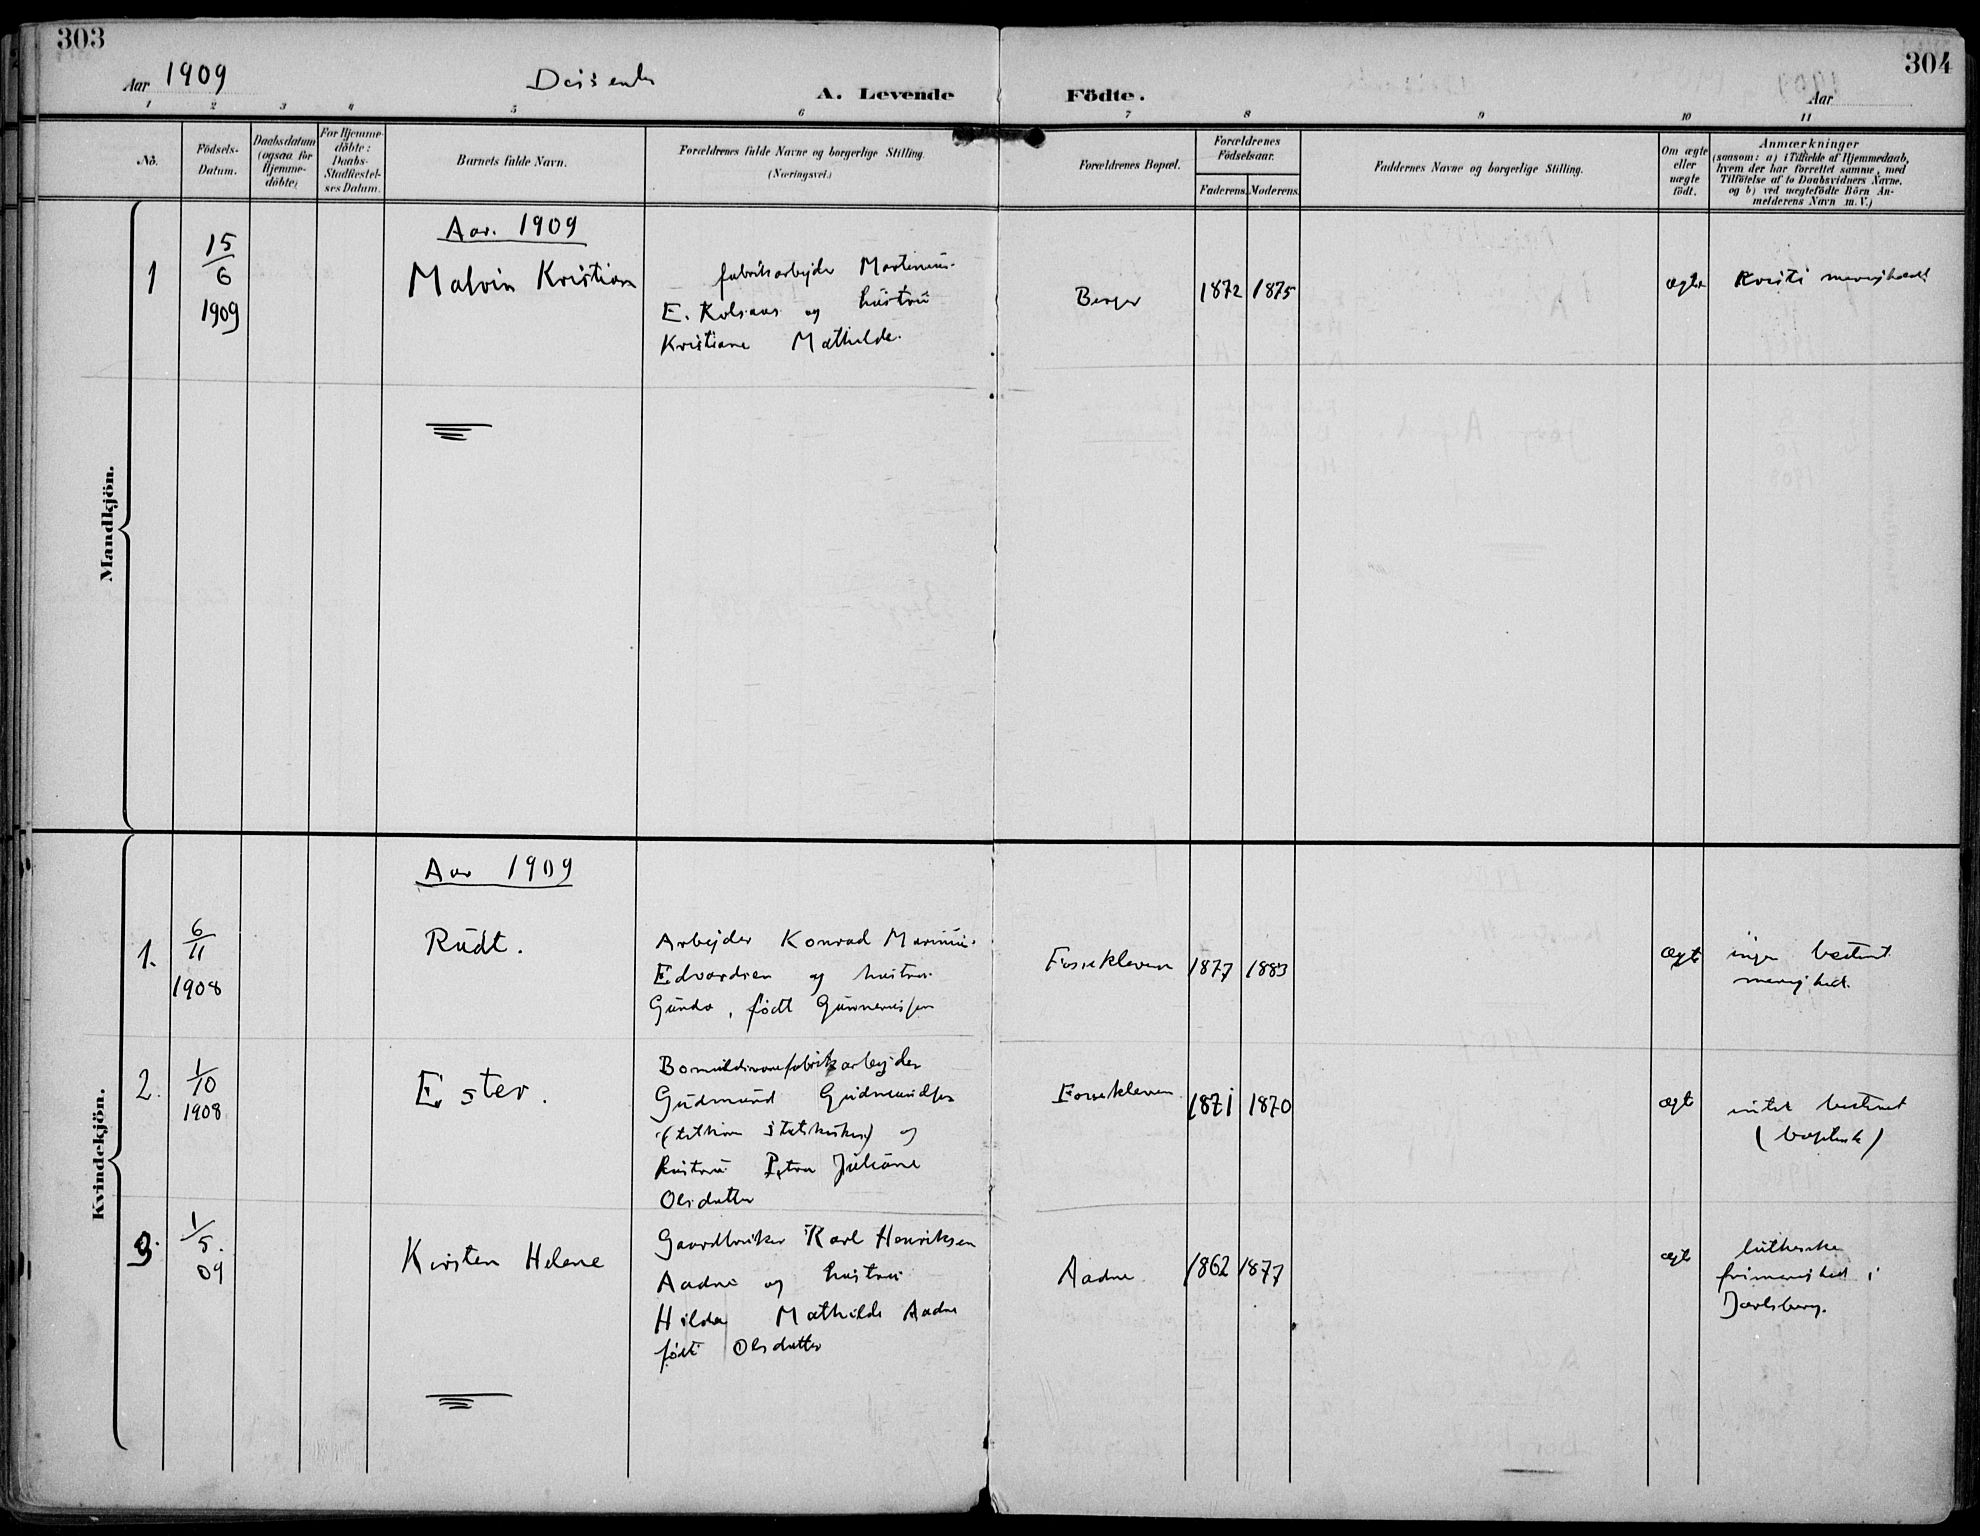 303
304
Aar 1909
Dissenter
A. Levende Födte.
Aar
1 2 3 4 5 6 7 8 9 10 11
No.
Födsels-
Datum.
Daabsdatum
(ogsaa for
Hjemme-
döbte)
For Hjemme-
döbte:
Daabs-
Stadfæstel-
ses Datum.
Barnets fulde Navn.
Forældrenes fulde Navne og borgerlige Stilling.
(Næringsvei.)
Forældrenes Bopæl.
Forældrenes
Födselsaar.
Faderens.
Moderens.
Faddernes Navne og borgerlige Stilling.
Om ægte
eller
uægte
födt.
Anmærkninger
(saasom: a) i Tilfælde af Hjemmedaab,
hvem der har forrettet samme, med
Tilföielse af to Daabsvidners Navne,
og b) ved uægtefödte Börn An-
melderens Navn m. V.)
Mandkjön.
Aar. 1909
1
15/6
1909
Malvin Kristian
fabrikarbejder Martinius
E. Kolsaas og hustru
Kristiane Mathilde.
Berger
1872
1875
ægte
Kristi menighed
Kvindekjön.
Aar 1909
1.
6/11
1908
Rudt.
Arbejder Konrad Marinius
Edvardsen og hustru
Gunda, født Gunneriussen
Fossekleven
1877
1883
ægte
ingen bestemt
menighed.
2.
1/10
1908
Ester.
Bomuldsvarefabrikarbejder
Gudmund Gudmundsen
og
hustru Petra Juliane
Olsdatter
Fossekleven
1871
1870
ægte
intet bestemt
(baptist)
3.
1/5.
09
Kirsten Helene
Gaardbruker Karl Henriksen
Aadne og hustru
Hilda Mathilde Aadne
født Olsdatter
Aadne
1862
1877
ægte
lutherske
frimenighed i
Jarlsberg.